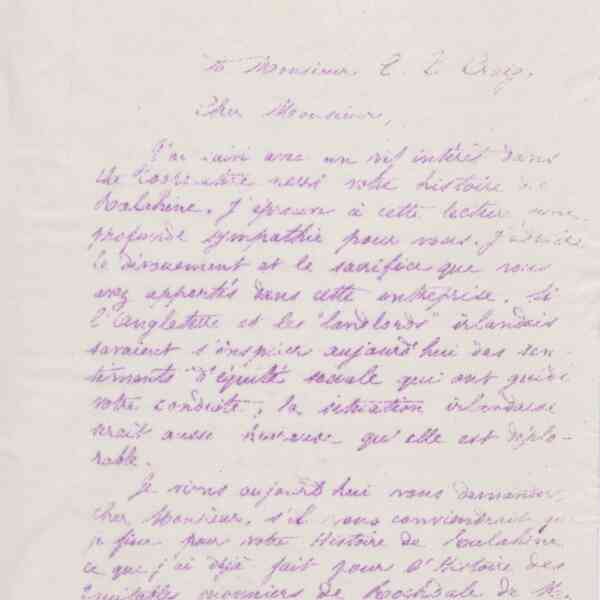 à Monsieur E. T. Craig.
Cher Monsieur,
J'ai suivi avec un vif intérêt dans
the Coöperative news votre histoire de
Ralahine. J'éprouve à cette lecture une
profonde sympathie pour vous. J'admire
le dévouement et le sacrifice que vous
avez apportés dans cette entreprise. Si
l'Angleterre et les "landlords" irlandais
savaient s'inspirer aujourd'hui des sen-
timents d'équité sociale qui ont guidé
votre conduite, la situation irlandaise
serait aussi heureuse qu'elle est déplo-
rable.
Je viens aujourd'hui vous demander,
cher Monsieur, s'il vous conviendrait que
je fisse pour votre Histoire de Ralahine
ce que j'ai déjà fait pour l'Histoire des
Equitables pionniers de Rochdale de